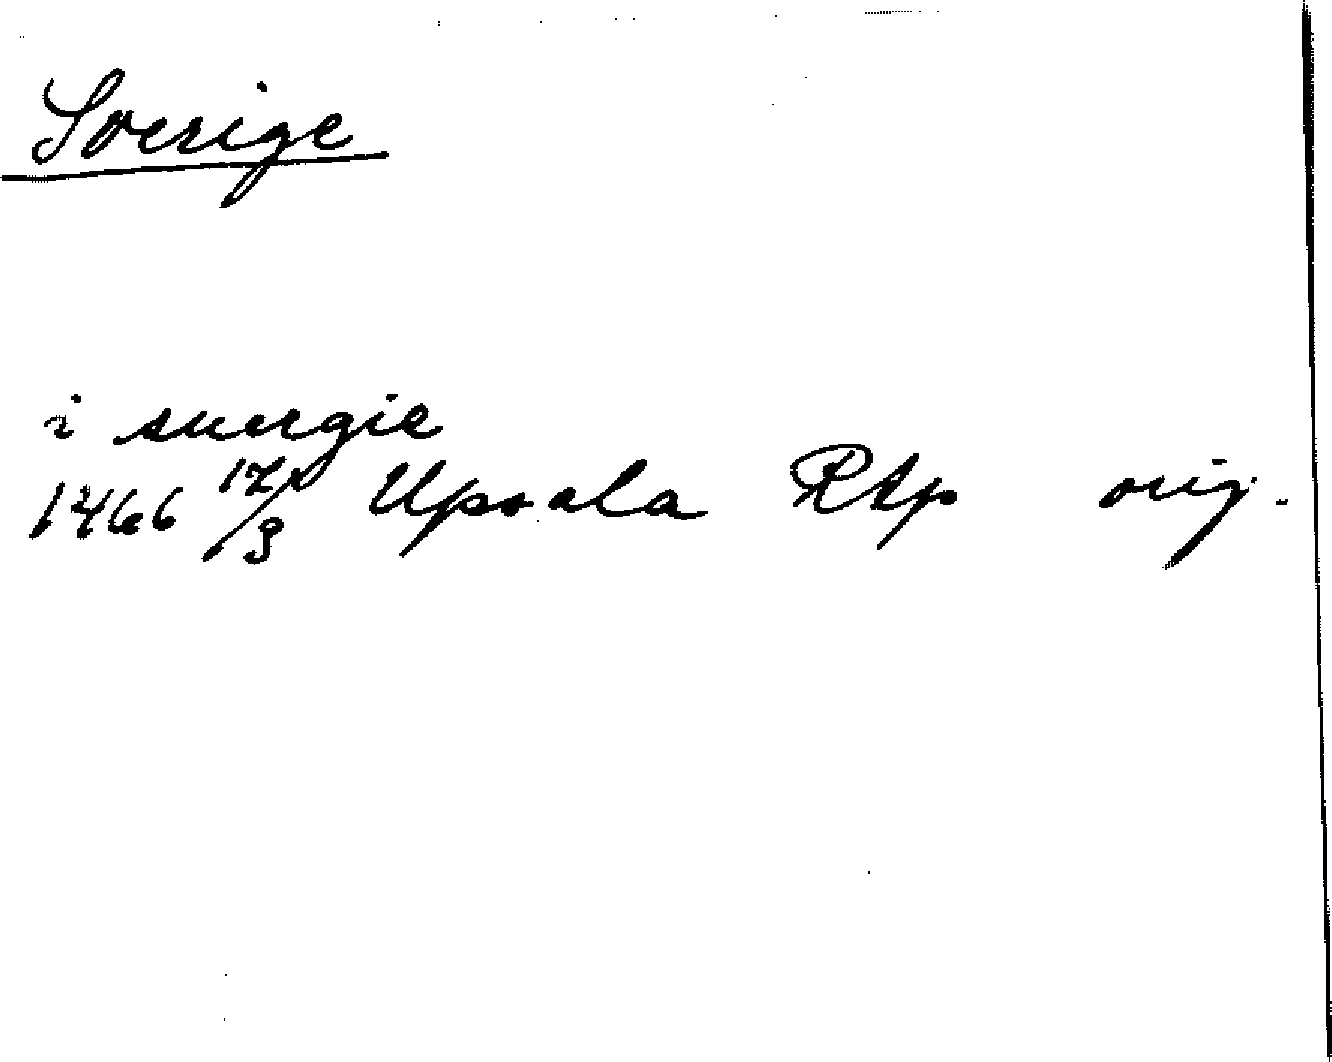 Sverige
i suergie
1466 17/3 Upsala RAp orig.